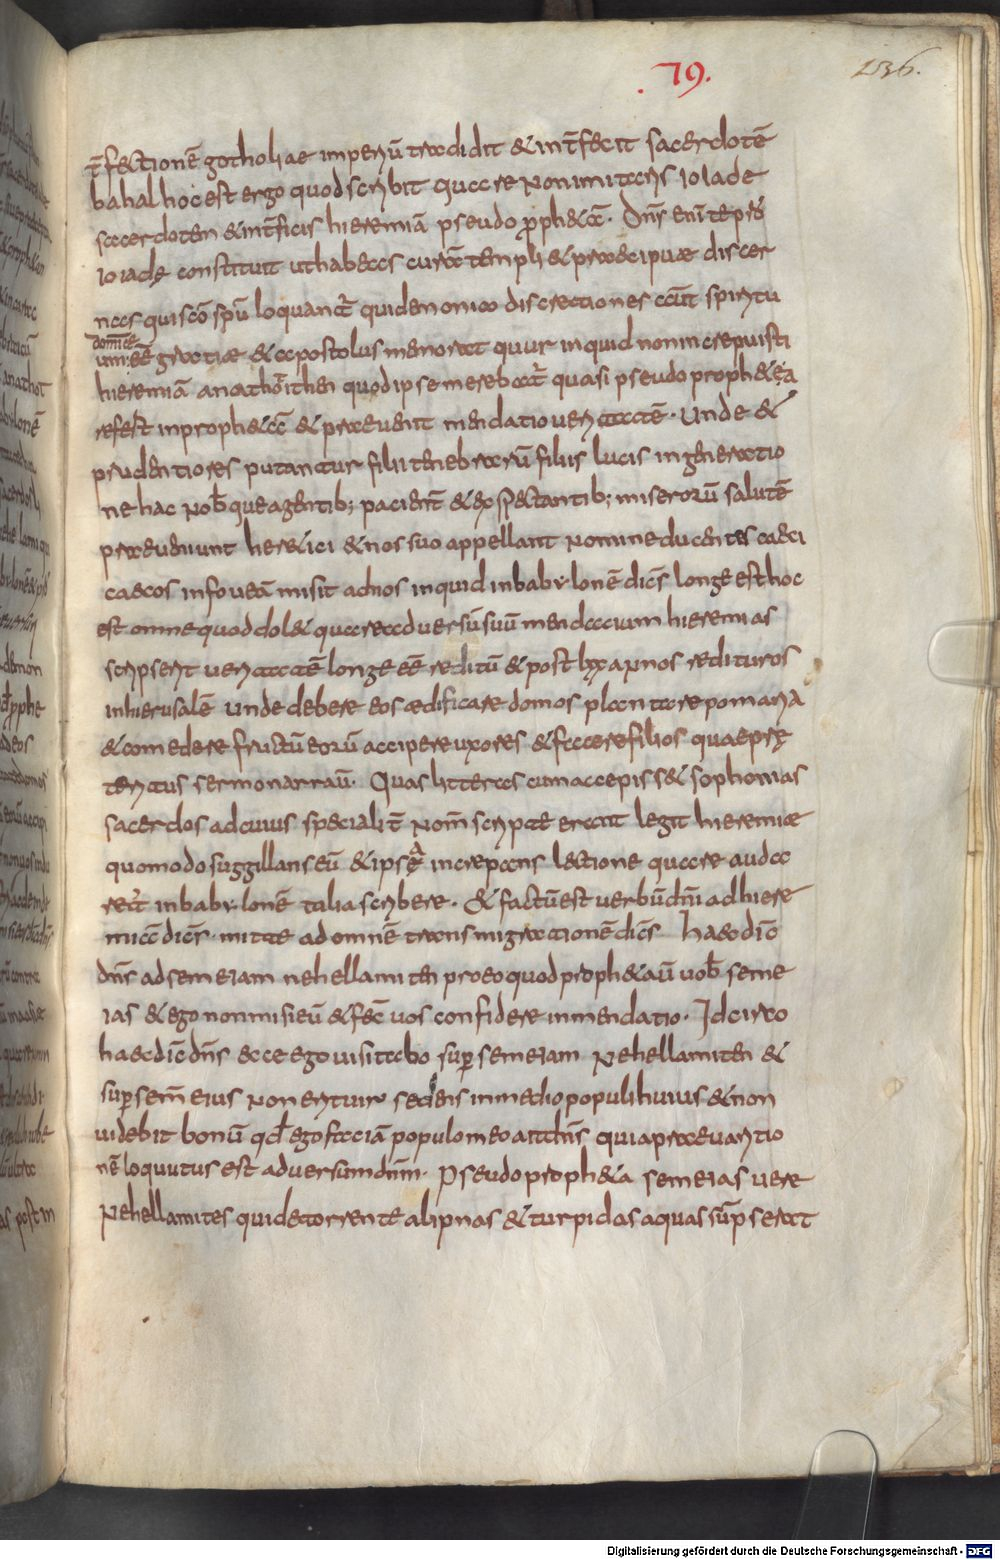 79.
236.
t̄fectionē gotholiae imperiū tradidit & int̄fecit sacerdotē
bahal hoc est ergo quod scribit quare non imitaris ioiade
sacerdotem & int̄ficis hieremiā pseudo proph&ā. Dn̄s enī te pro
ioiade constituit ut habeas curā templi & praecipuae discer
nas qui sc̄o sp̄u loquant̄ qui demoniaco discretiones eni spiritu
um eē gratiae & apostolus memorat quur inquid non increpuisti
domicae
hieremiā anathothiten quod ipse merebat̄ quasi pseudo proph&a
refest in proph&ā & praevenit mendatio veritatē. Unde &
prudentiores putantur filii tenebrarū filiis lucis in generatio
ne hac nob̄ que agentib; pacient̄ & expectantib; miserorū salutē
praeveniunt her&ici & nos suo appellant nomine ducentes caeci
caecos in foveā misit ad nos inquid in babylonē dicēs longe est hoc
est omne quod dol& quare adversū suū mendacium hieremias
scripserit veritatē longe eē reditū & post lxx annos redituros
in hierusalē unde debere eos aedificare domos plantare pomaria
& comedere fructū eorū accipere uxores & facere filios quae prę
teritus sermo narraū. Quas litteras cum accepiss& sophonias
sacerdos ad cuius specialit̄ nom̄ scriptae erant legit hieremiae
quomodo suggillans eū & ipsā increpans lectione quare auda
ret in babylonē talia scribere. & factū est verbū dn̄i ad hiere
miā dicēs. mitte ad omnē transmigrationē dicēs haec dic̄
dn̄s ad semeiam nehellamiten pro eo quod proph&aū vob̄ seme
ias & ego non misi eū & fec̄ vos confidere in mendatio. Idcirco
haec dic̄ dn̄s ecce ego visitabo sup̄ semeiam nehellamiten &
sup̄ sem̄ eius non erit vir sedens in medio populi huius & non
videbit bonū qd̄ ego faciā populo meo ait dn̄s quia praevaritio
nē loquutus est adversum dn̄m. Pseudo proph&a semeias vere
nehellamites qui de torrente alienas & turpidas aquas sūpserat